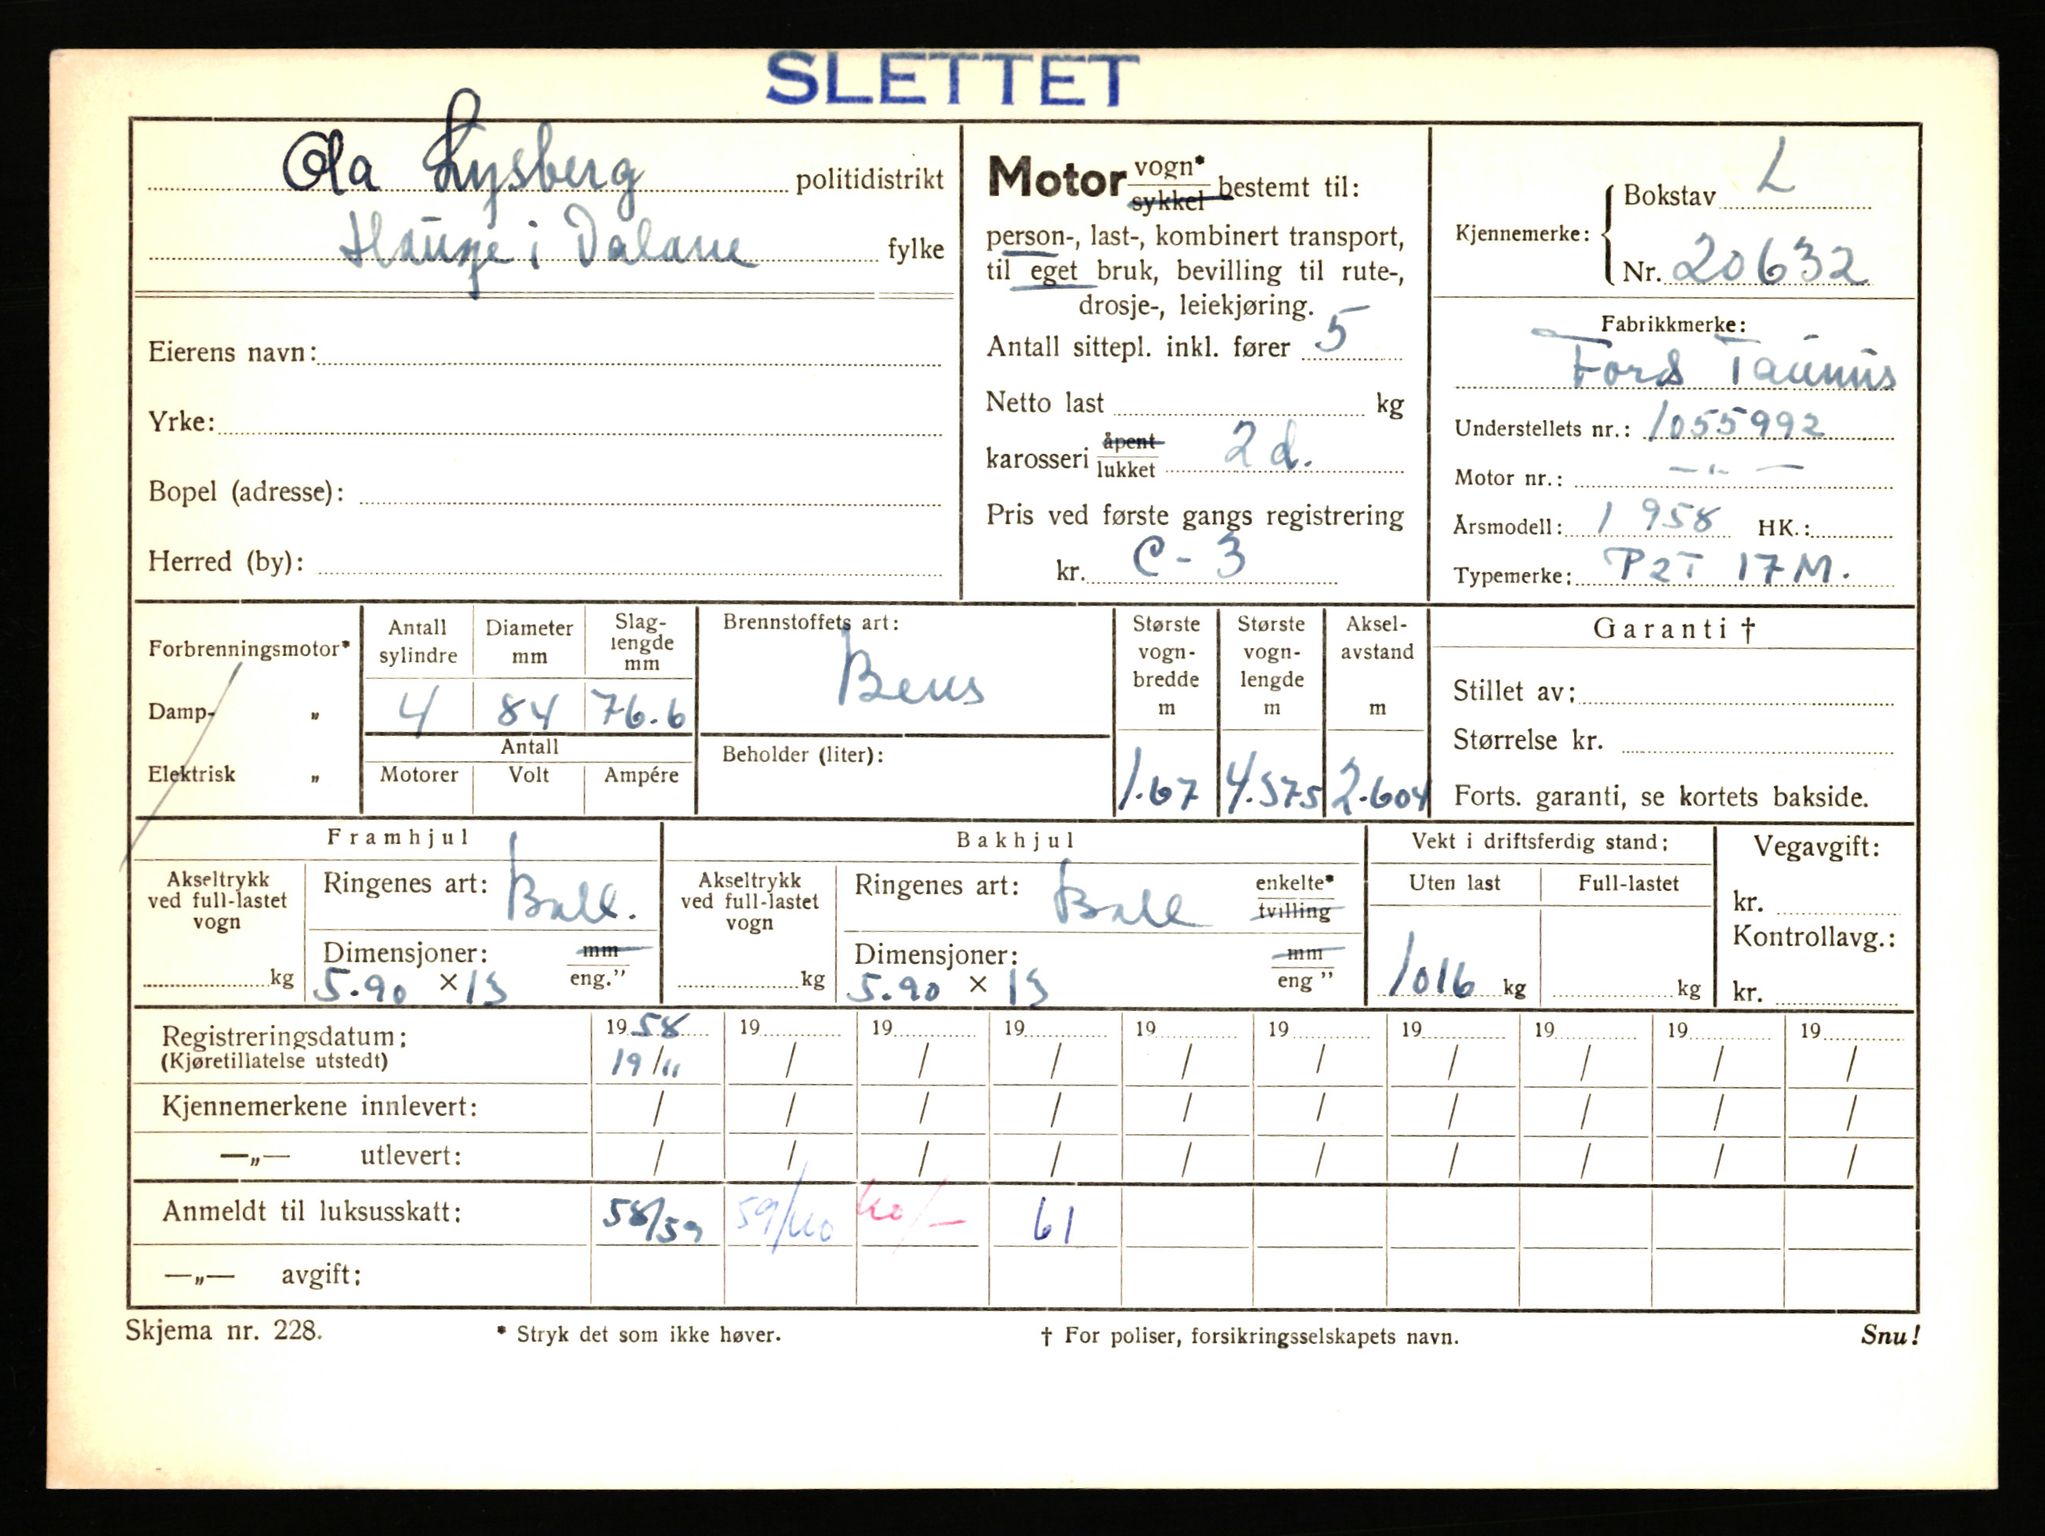 SLETTET
Ola Lysberg politidistrikt
Hauge i Dalane fylke
Eierens navn:
Yrke:
Bopel (adresse):
Herred (by):
Motor vogn* sykkel bestemt til:
person-, last-, kombinert transport,
til eget bruk, bevilling til rute-,
drosje-, leiekjøring.
Antall sittepl. inkl. fører 5
Netto last kg
karosseri åpent lukket 2 d.
Pris ved første gangs registrering
kr. C - 3
Kjennemerke: Bokstav L
Nr. 20632
Fabrikkmerke:
Ford Taunus
Understellets nr.: 1055992
Motor nr.: — " —
Årsmodell: 1958 HK.:
Typemerke: P2T 17M.
Forbrenningsmotor*
Damp- „
Elektrisk „
Antall sylindre
Diameter mm
Slag-
lengde
mm
4 84 76.6
Antall
Motorer Volt Ampére
Brennstoffets art:
Bens
Beholder (liter):
Største
vogn-
bredde
m
1.67
Største
vogn-
lengde
m
4.375
Aksel-
avstand
m
2.604
Garanti †
Stillet av:
Størrelse kr.
Forts. garanti, se kortets bakside.
Framhjul
Akseltrykk
ved full-lastet
vogn
kg
Ringenes art: Ball.
Dimensjoner: mm eng."
5.90 × 13
Bakhjul
Akseltrykk
ved full-lastet
vogn
kg
Ringenes art: Ball enkelte* tvilling
Dimensjoner: mm eng"
5.90 × 13
Vekt i driftsferdig stand:
Uten last Full-lastet
1016 kg kg
Vegavgift:
kr.
Kontrollavg.:
kr.
Registreringsdatum: 1958 19 19 19 19 19 19 19 19 19
(Kjøretillatelse utstedt) 19/11 / / / / / / / / /
Kjennemerkene innlevert: / / / / / / / / / /
—„— utlevert: / / / / / / / / / /
Anmeldt til luksusskatt: 58/59 59/60 60/— 61
—„— avgift:
Skjema nr. 228. * Stryk det som ikke høver. † For poliser, forsikringsselskapets navn. Snu!